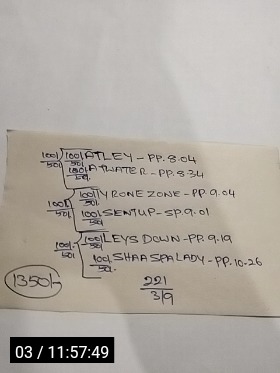 100/50 100/50 ATLEY - PP. 8.04
100/50 ATWATER - PP. 8.34
100/50 100/50 TYRONE ZONE - PP. 9.04
100/50 SENTUP - SP. 9.01
100/50 100/50 LEYS DOWN - PP. 9.19
100/50 SHAA SPA LADY - PP. 10.26
1350/-
221
319
03 / 11:57:49